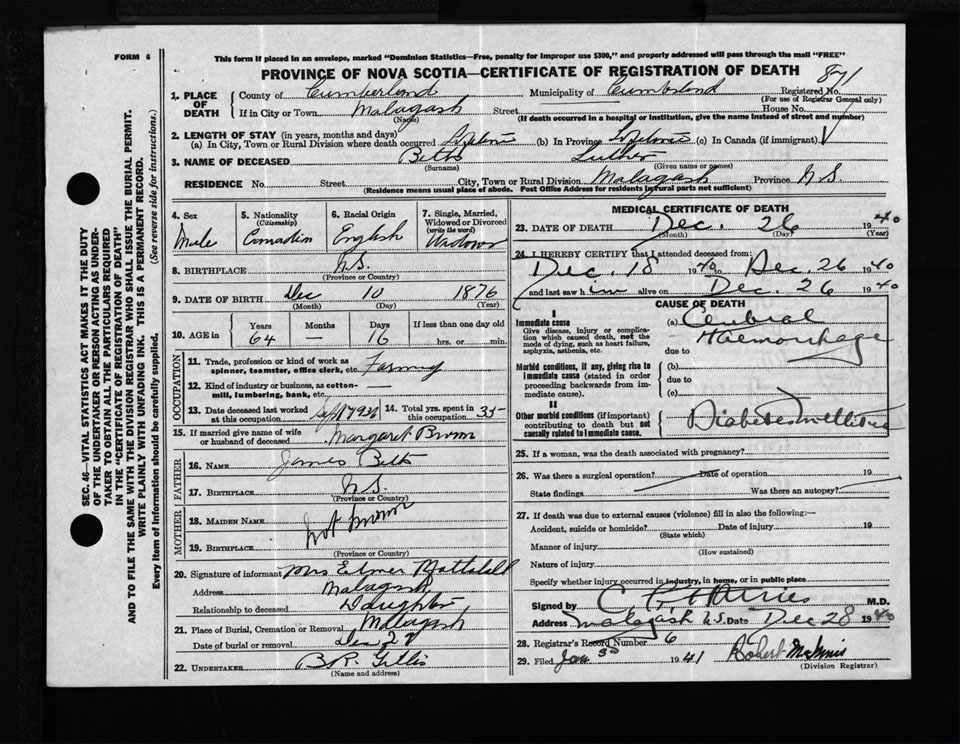 FORM 6
This form if placed in an envelope, marked "Dominion Statistics—Free, penalty for improper use $300," and properly addressed will pass through the mail "FREE"
PROVINCE OF NOVA SCOTIA—CERTIFICATE OF REGISTRATION OF DEATH 871
1. PLACE OF DEATH County of Cumberland Municipality of Cumberland Registered No.
(For use of Registrar General only)
If in City or Town Malagash Street House No.
(Name) (If death occurred in a hospital or institution, give the name instead of street and number)
2. LENGTH OF STAY (in years, months and days)
(a) In City, Town or Rural Division where death occurred Lifetime (b) In Province Lifetime (c) In Canada (if immigrant)
3. NAME OF DECEASED Betts Luther
(Surname) (Given name or names)
RESIDENCE No. Street City, Town or Rural Division Malagash Province N.S.
(Residence means usual place of abode. Post Office Address for residents in rural parts not sufficient)
4. Sex Male
5. Nationality (Citizenship) Canadian
6. Racial Origin English
7. Single, Married, Widowed or Divorced (write the word) Widower
8. BIRTHPLACE N.S.
(Province or Country)
9. DATE OF BIRTH Dec 10 1876
(Month) (Day) (Year)
10. AGE in Years 64 Months — Days 16 If less than one day old hrs. or min.
OCCUPATION
11. Trade, profession or kind of work as spinner, teamster, office clerk, etc. Farming
12. Kind of industry or business, as cotton-mill, lumbering, bank, etc. —
13. Date deceased last worked at this occupation Sept 1936 14. Total yrs. spent in this occupation 35
15. If married give name of wife or husband of deceased Margaret Brown
FATHER
16. NAME James Betts
17. BIRTHPLACE N.S.
(Province or Country)
MOTHER
18. MAIDEN NAME not known
19. BIRTHPLACE
(Province or Country)
20. Signature of informant Mrs Elmer
Address Malagash
Relationship to deceased Daughter
21. Place of Burial, Cremation or Removal Malagash
Date of burial or removal Dec
22. UNDERTAKER B.R. Gillis
(Name and address)
MEDICAL CERTIFICATE OF DEATH
23. DATE OF DEATH Dec. 26 1940
(Month) (Day) (Year)
24. I HEREBY CERTIFY that I attended deceased from:
Dec. 18 1940 to Dec. 26 1940
and last saw him alive on Dec. 26 1940
CAUSE OF DEATH
I
Immediate cause
Give disease, injury or complication which caused death, not the mode of dying, such as heart failure, asphyxia, asthenia, etc.
(a) Cerebral Haemorrhage
due to
Morbid conditions, if any, giving rise to immediate cause (stated in order proceeding backwards from immediate cause).
(b)
due to
(c)
II
Other morbid conditions (if important) contributing to death but not causally related to immediate cause.
Diabetes Mellitus
25. If a woman, was the death associated with pregnancy?
26. Was there a surgical operation? Date of operation 19
State findings Was there an autopsy?
27. If death was due to external causes (violence) fill in also the following:—
Accident, suicide or homicide? Date of injury 19
(State which)
Manner of injury
(How sustained)
Nature of injury
Specify whether injury occurred in industry, in home, or in public place
Signed by M.D.
Address Malagash N.S. Date Dec 28 1940
28. Registrar's Record Number 6
29. Filed Jan 3rd 1941 Robert
(Division Registrar)
SEC. 46—VITAL STATISTICS ACT MAKES IT THE DUTY
OF THE UNDERTAKER OR PERSON ACTING AS UNDER-
TAKER TO OBTAIN ALL THE PARTICULARS REQUIRED
IN THE "CERTIFICATE OF REGISTRATION OF DEATH"
AND TO FILE THE SAME WITH THE DIVISION REGISTRAR WHO SHALL ISSUE THE BURIAL PERMIT.
WRITE PLAINLY WITH UNFADING INK. THIS IS A PERMANENT RECORD.
Every item of information should be carefully supplied. (See reverse side for instructions.)